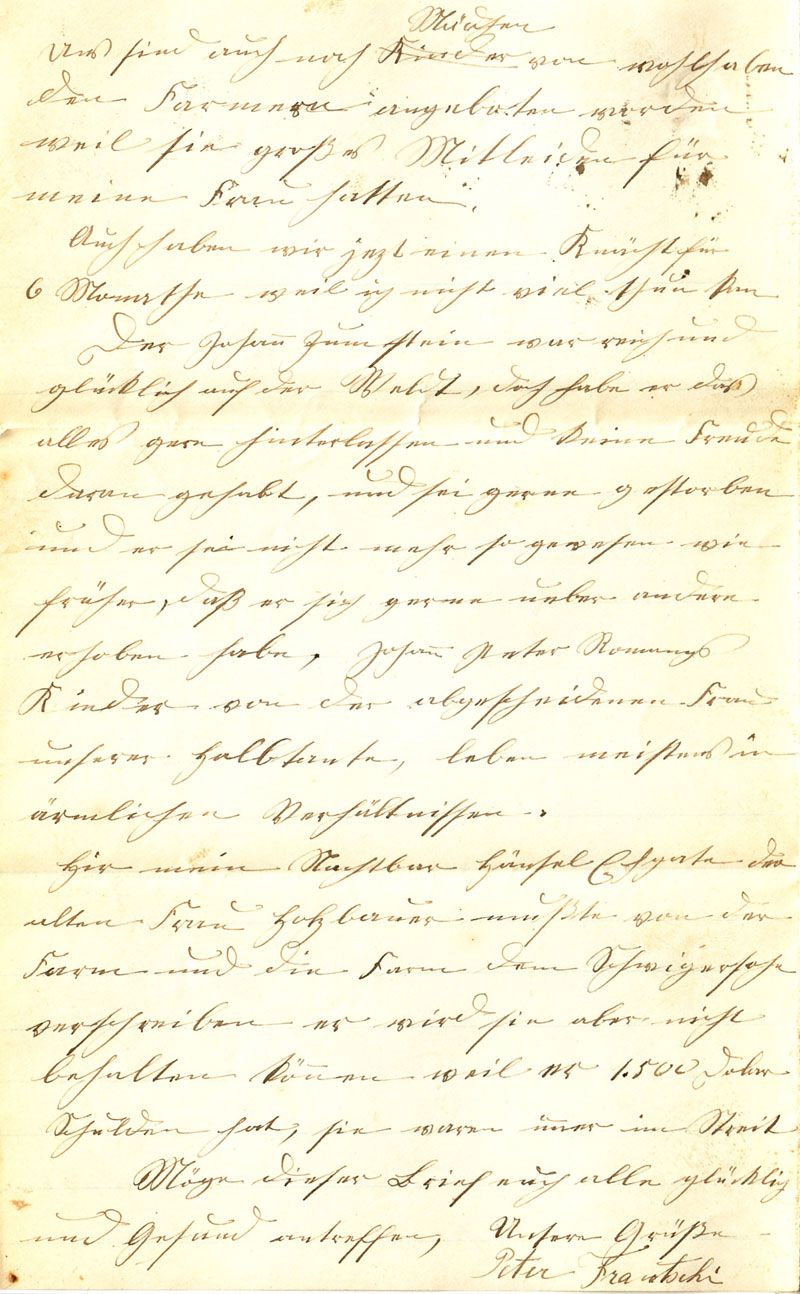 Mädchen
Uns sind auch noch Kinder von wohlhaben
den Farmern angeboten worden
weil sie großes Mitleiden für
meine Frau hatten.
Auch haben wir jezt einen Knächt für
6 Monathe weil ich nicht viel thun kan
Der Johann Zumstein war reich und
glücklich auf der Weldt, doch habe er das
alles gern hinterlassen und keine Freude
daran gehabt, und sei gerne gestorben
und er sei nicht mehr so gewesen wie
früher, daß er sich gerne ueber andere
erhoben habe, Johann Peter Romangs
Kinder von der abgescheidenen Frau
unserer Halbtante, leben meistens in
ärmlichen Verhältnissen.
Hir mein Nachtbar Hänsel der
alten Frau Holzbauer mußte von der
Farm und die Farm dem Schwigersohn
verschreiben er wird sie aber nicht
behalten können weil er 1.500 Dolar
Schulden hat, sie waren imer im Streit
Möge dieser Brief euch alle glücklich
und Gesund antreffen, Unsere Grüße
Peter Frautschi